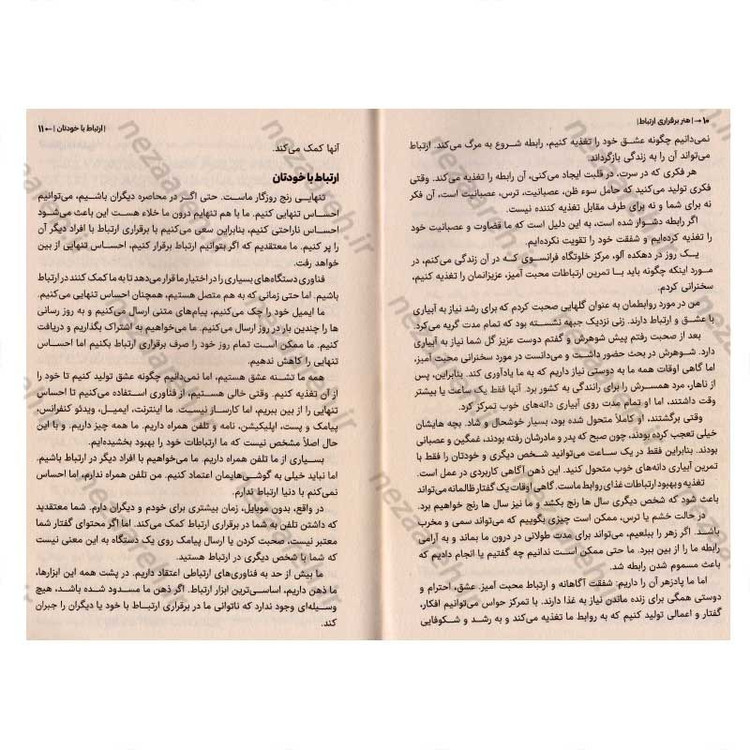 ۱۰ ← | هنر برقراری ارتباط |
نمی‌دانیم چگونه عشق خود را تغذیه کنیم، رابطه شروع به مرگ می‌کند. ارتباط
می‌تواند آن را به زندگی بازگرداند.
هر فکری که در سرت، در قلبت ایجاد می‌کنی، آن رابطه را تغذیه می‌کند. وقتی
فکری تولید می‌کنید که حامل سوء ظن، عصبانیت، ترس، عصبانیت است، آن فکر
نه برای شما و نه برای طرف مقابل تغذیه کننده نیست.
اگر رابطه دشوار شده است، به این دلیل است که ما قضاوت و عصبانیت خود
را تغذیه کرده‌ایم و شفقت خود را تقویت نکرده‌ایم.
یک روز در دهکده آلو، مرکز خلوتگاه فرانسوی که در آن زندگی می‌کنم، در
مورد اینکه چگونه باید با تمرین ارتباطات محبت آمیز، عزیزانمان را تغذیه کنیم،
سخنرانی کردم.
من در مورد روابطمان به عنوان گلهایی صحبت کردم که برای رشد نیاز به آبیاری
با عشق و ارتباط دارند. زنی نزدیک جبهه نشسته بود که تمام مدت گریه می‌کرد.
بعد از صحبت رفتم پیش شوهرش و گفتم دوست عزیز گل شما نیاز به آبیاری
دارد. شوهرش در بحث حضور داشت و می‌دانست در مورد سخنرانی محبت آمیز،
اما گاهی اوقات همه ما به دوستی نیاز داریم که به ما یادآوری کند. بنابراین، پس
از ناهار، مرد همسرش را برای رانندگی به کشور برد. آنها فقط یک ساعت یا بیشتر
وقت داشتند، اما او تمام مدت روی آبیاری دانه‌های خوب تمرکز کرد.
وقتی برگشتند، او کاملاً متحول شده بود، بسیار خوشحال و شاد. بچه هایشان
خیلی تعجب کرده بودند، چون صبح که پدر و مادرشان رفته بودند، غمگین و عصبانی
بودند. بنابراین فقط در یک ساعت می‌توانید شخص دیگری و خودتان را فقط با
تمرین آبیاری دانه‌های خوب متحول کنید. این ذهن آگاهی کاربردی در عمل است.
تغذیه و بهبود ارتباطات غذای روابط ماست. گاهی اوقات یک گفتار ظالمانه می‌تواند
باعث شود که شخص دیگری سال ها رنج بکشد و ما نیز سال ها رنج خواهیم برد.
در حالت خشم یا ترس، ممکن است چیزی بگوییم که می‌تواند سمی و مخرب
باشد. اگر زهر را ببلعیم، می‌تواند برای مدت طولانی در درون ما بماند و به آرامی
رابطه ما را از بین ببرد. ما حتی ممکن است ندانیم چه گفتیم یا انجام دادیم که
باعث مسموم شدن رابطه شد.
اما ما پادزهر آن را داریم: شفقت آگاهانه و ارتباط محبت آمیز. عشق، احترام و
دوستی همگی برای زنده ماندن نیاز به غذا دارند. با تمرکز حواس می‌توانیم افکار،
گفتار و اعمالی تولید کنیم که به روابط ما تغذیه می‌کند و به رشد و شکوفایی
| ارتباط با خودتان | → ۱۱
آنها کمک می‌کند.
ارتباط با خودتان
تنهایی رنج روزگار ماست. حتی اگر در محاصره دیگران باشیم، می‌توانیم
احساس تنهایی کنیم. ما با هم تنهاییم درون ما خلاء هست این باعث می‌شود
احساس ناراحتی کنیم، بنابراین سعی می‌کنیم با برقراری ارتباط با افراد دیگر آن
را پر کنیم. ما معتقدیم که اگر بتوانیم ارتباط برقرار کنیم، احساس تنهایی از بین
خواهد رفت.
فناوری دستگاه‌های بسیاری را در اختیار ما قرار می‌دهد تا به ما کمک کنند در ارتباط
باشیم. اما حتی زمانی که به هم متصل هستیم، همچنان احساس تنهایی می‌کنیم.
ما ایمیل خود را چک می‌کنیم، پیام‌های متنی ارسال می‌کنیم و به روز رسانی
ها را چندین بار در روز ارسال می‌کنیم. ما می‌خواهیم به اشتراک بگذاریم و دریافت
کنیم. ما ممکن است تمام روز خود را صرف برقراری ارتباط بکنیم اما احساس
تنهایی را کاهش ندهیم.
همه ما تشنه عشق هستیم، اما نمی‌دانیم چگونه عشق تولید کنیم تا خود را
از آن تغذیه کنیم. وقتی خالی هستیم، از فناوری استفاده می‌کنیم تا احساس
تنهایی را از بین ببریم، اما کارساز نیست. ما اینترنت، ایمیل، ویدئو کنفرانس،
پیامک و پست، اپلیکیشن، نامه و تلفن همراه داریم. ما همه چیز داریم. و با این
حال اصلاً مشخص نیست که ما ارتباطات خود را بهبود بخشیده‌ایم.
بسیاری از ما تلفن همراه داریم. ما می‌خواهیم با افراد دیگر در ارتباط باشیم.
اما نباید خیلی به گوشی‌هایمان اعتماد کنیم. من تلفن همراه ندارم، اما احساس
نمی‌کنم با دنیا ارتباط ندارم.
در واقع، بدون موبایل، زمان بیشتری برای خودم و دیگران دارم. شما معتقدید
که داشتن تلفن به شما در برقراری ارتباط کمک می‌کند. اما اگر محتوای گفتار شما
معتبر نیست، صحبت کردن یا ارسال پیامک روی یک دستگاه به این معنی نیست
که شما با شخص دیگری در ارتباط هستید.
ما بیش از حد به فناوری‌های ارتباطی اعتقاد داریم. در پشت همه این ابزارها،
ما ذهن داریم، اساسی‌ترین ابزار ارتباط. اگر ذهن ما مسدود شده باشد، هیچ
وسیله‌ای وجود ندارد که ناتوانی ما در برقراری ارتباط با خود یا دیگران را جبران
کند.